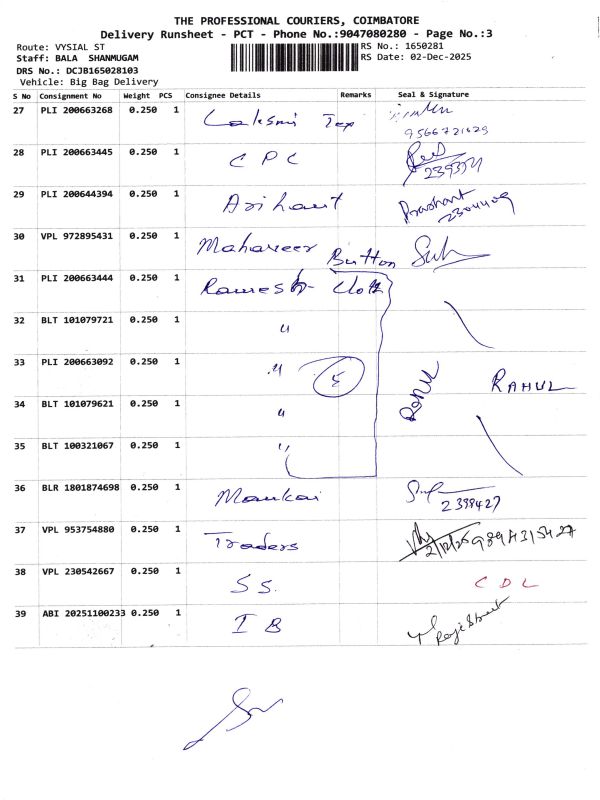 THE PROFESSIONAL COURIERS, COIMBATORE
Delivery Runsheet - PCT - Phone No.:9047080280 - Page No.:3
Route: VYSIAL ST RS No.: 1650281
Staff: BALA SHANMUGAM RS Date: 02-Dec-2025
DRS No.: DCJB165028103
Vehicle: Big Bag Delivery
S No Consignment No Weight PCS Consignee Details Remarks Seal & Signature
27 PLI 200663268 0.250 1 Laksmi Tex
28 PLI 200663445 0.250 1 C P C
29 PLI 200644394 0.250 1 Arihant Prashant 2304409
30 VPL 972895431 0.250 1 Mahaveer Button
31 PLI 200663444 0.250 1 Ramesh Cloth
32 BLT 101079721 0.250 1 "
33 PLI 200663092 0.250 1 " 5 RAHUL
34 BLT 101079621 0.250 1 "
35 BLT 100321067 0.250 1 "
36 BLR 1801874698 0.250 1 2398427
37 VPL 953754880 0.250 1 Traders 2/12/25
38 VPL 230542667 0.250 1 S S. C D L
39 ABI 20251100233 0.250 1 I B